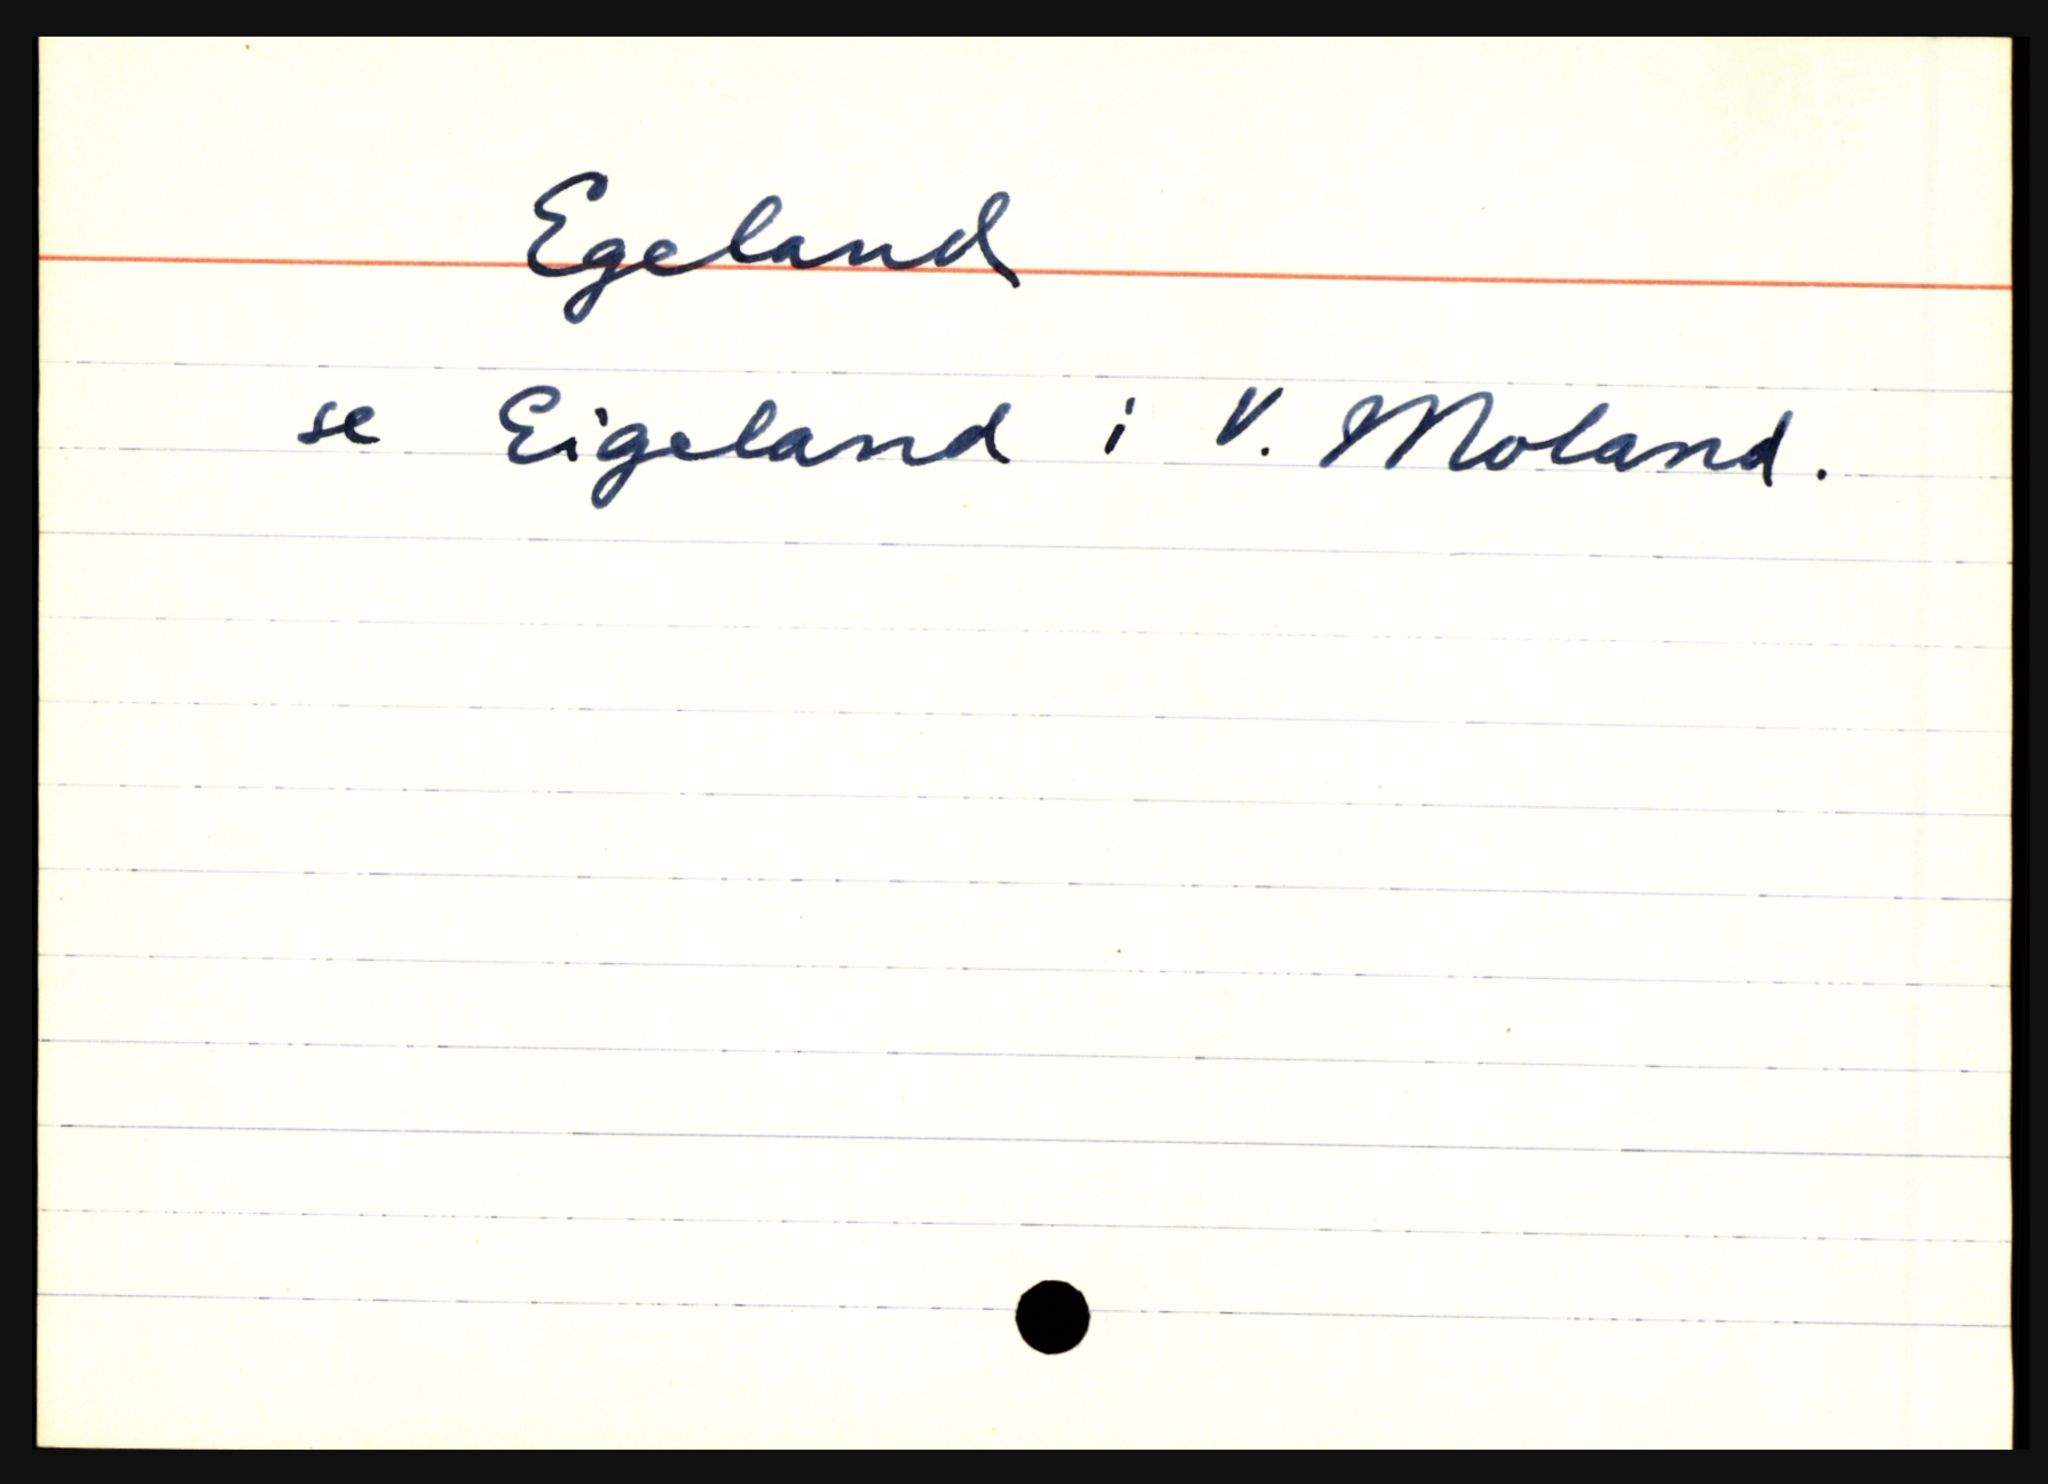 Egeland
se Eigeland i V. Moland.